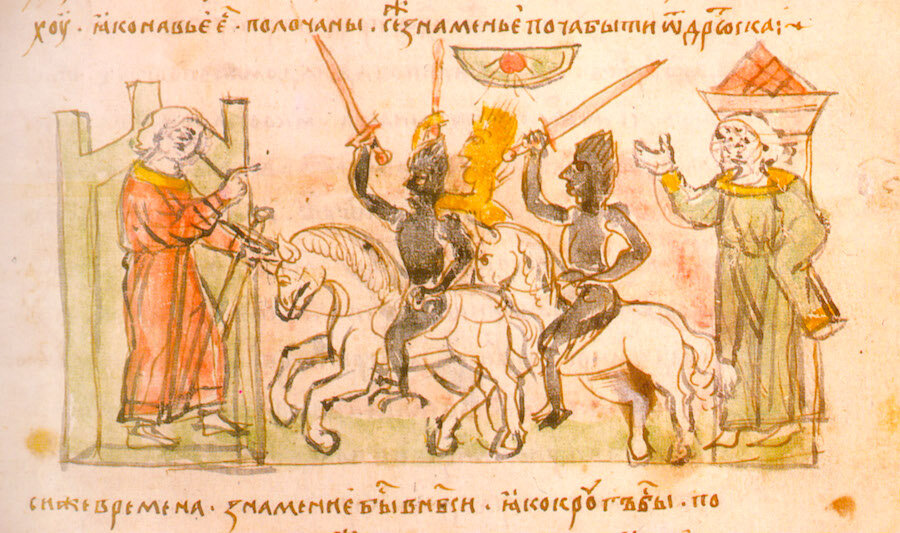 хоу · ꙗко навьѐ еⷭ҇ · полочаны · сеⷤ знаменьѐ поча быти ѿ дрѿска :~
си же времена · знамение быⷭ҇ в нб҃си · ꙗко кроугъ бы · по